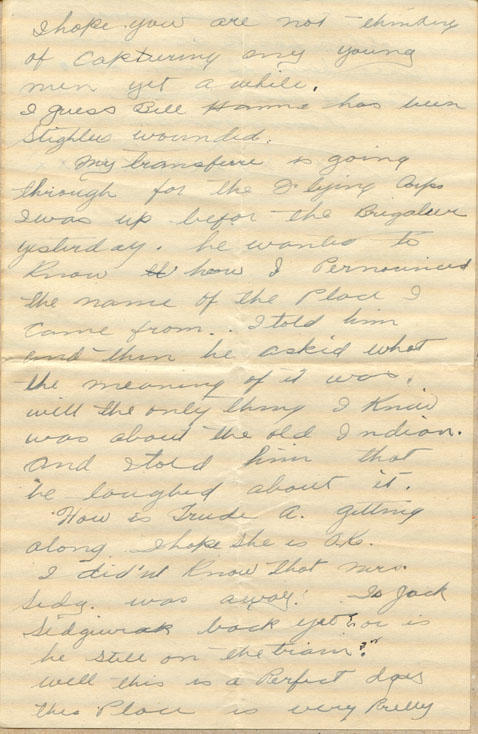 I hope you are not thinking
of Capturing any young
men yet a while.
I guess Bill has been
Slightly wounded.
My transferre is going
through for the Flying Corps
I was up befor the Brigadeer
yesterday. he wanted to
Know how I Pernounced
the name of the Place I
Came from.. I told him
and then he asked what
the meaning of it was.
well the only thing I Know
was about the old Indian.
and I told him that
he laughed about it.
How is Trude A. getting
along. I hope she is O.K.
I did'nt Know that Mrs.
Sidg. was away. Is Jack
Sidgiwick back yet or is
he still on the train?"
well this is a Perfect days
this Place is very Pretty